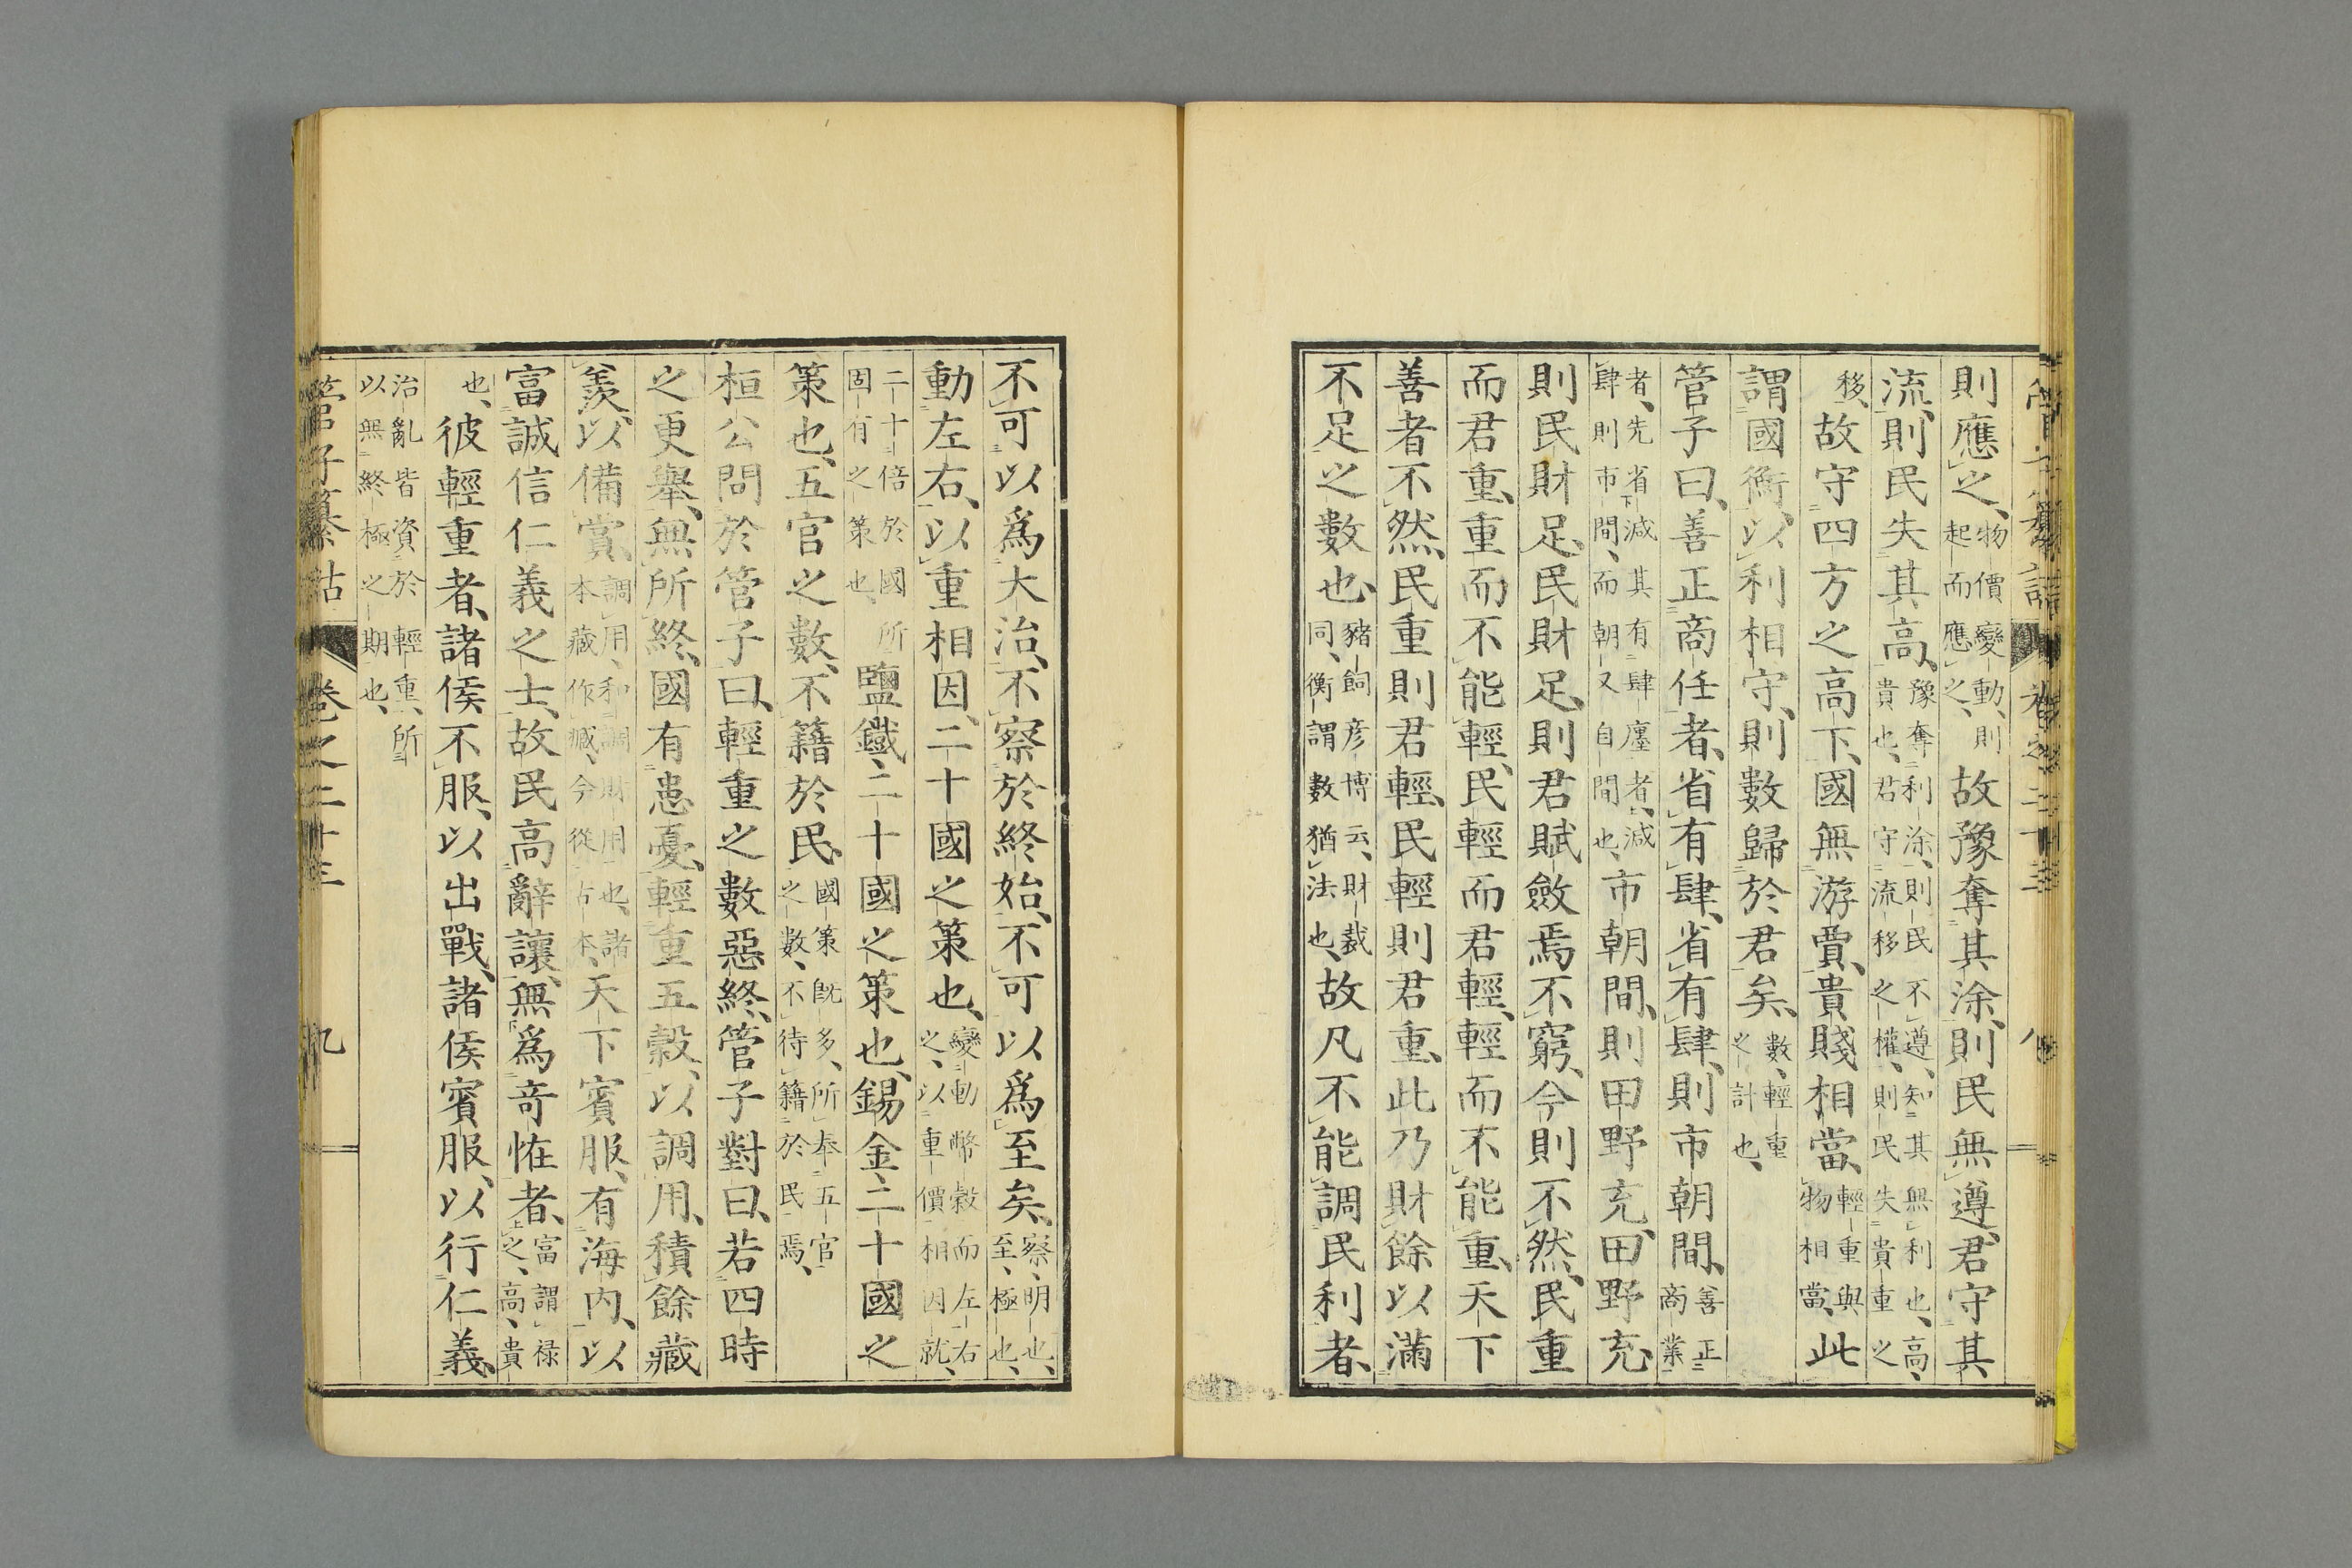 管子纂詁 卷之二十三 八
則應之、物價變動、則起而應之、故豫奪其涂、則民無遵、君守其
流、則民失其高、豫奪利涂、則民不遵、知其無利也、高、貴也、君守流移之權、則民失貴重之
移、故守四方之高下、國無游賈、貴賤相當、輕重與物相當、此
謂國衡、以利相守、則數歸於君矣、數、輕重之計也、
管子曰、善正商任者、省有肆、省有肆、則市朝閒、善正商業
者、先省減其有肆廛者、減肆則市閒、而朝又自閒也、市朝閒、則田野充、田野充、
則民財足、民財足、則君賦斂焉不窮、今則不然、民重
而君重、重而不能輕、民輕而君輕、輕而不能重、天下
善者不然、民重則君輕、民輕則君重、此乃財餘以滿
不足之數也、豬飼彥博云、財裁同、衡謂數猶法也、故凡不能調民利者、
不可以爲大治、不察於終始、不可以爲至矣、察、明也、至、極也、
動左右、以重相因、二十國之策也、變動幣穀而左右之、以重價相因就、
二十倍於國所固有之策也、鹽鐵、二十國之策也、錫金、二十國之
策也、五官之數、不籍於民、國策既多、所奉五官之數、不待籍於民焉、
桓公問於管子曰、輕重之數惡終、管子對曰、若四時
之更舉、無所終、國有患憂、輕重五穀、以調用、積餘藏
羨、以備賞、調用、和調財用也、諸本藏作臧、今從古本、天下賓服、有海內、以
富誠信仁義之士、故民高辭讓、無爲奇怪者、富謂祿之、高、貴
也、彼輕重者、諸侯不服、以出戰、諸侯賓服、以行仁義、
治亂皆資於輕重、所以無終極之期也、
管子纂詁 卷之二十三 九